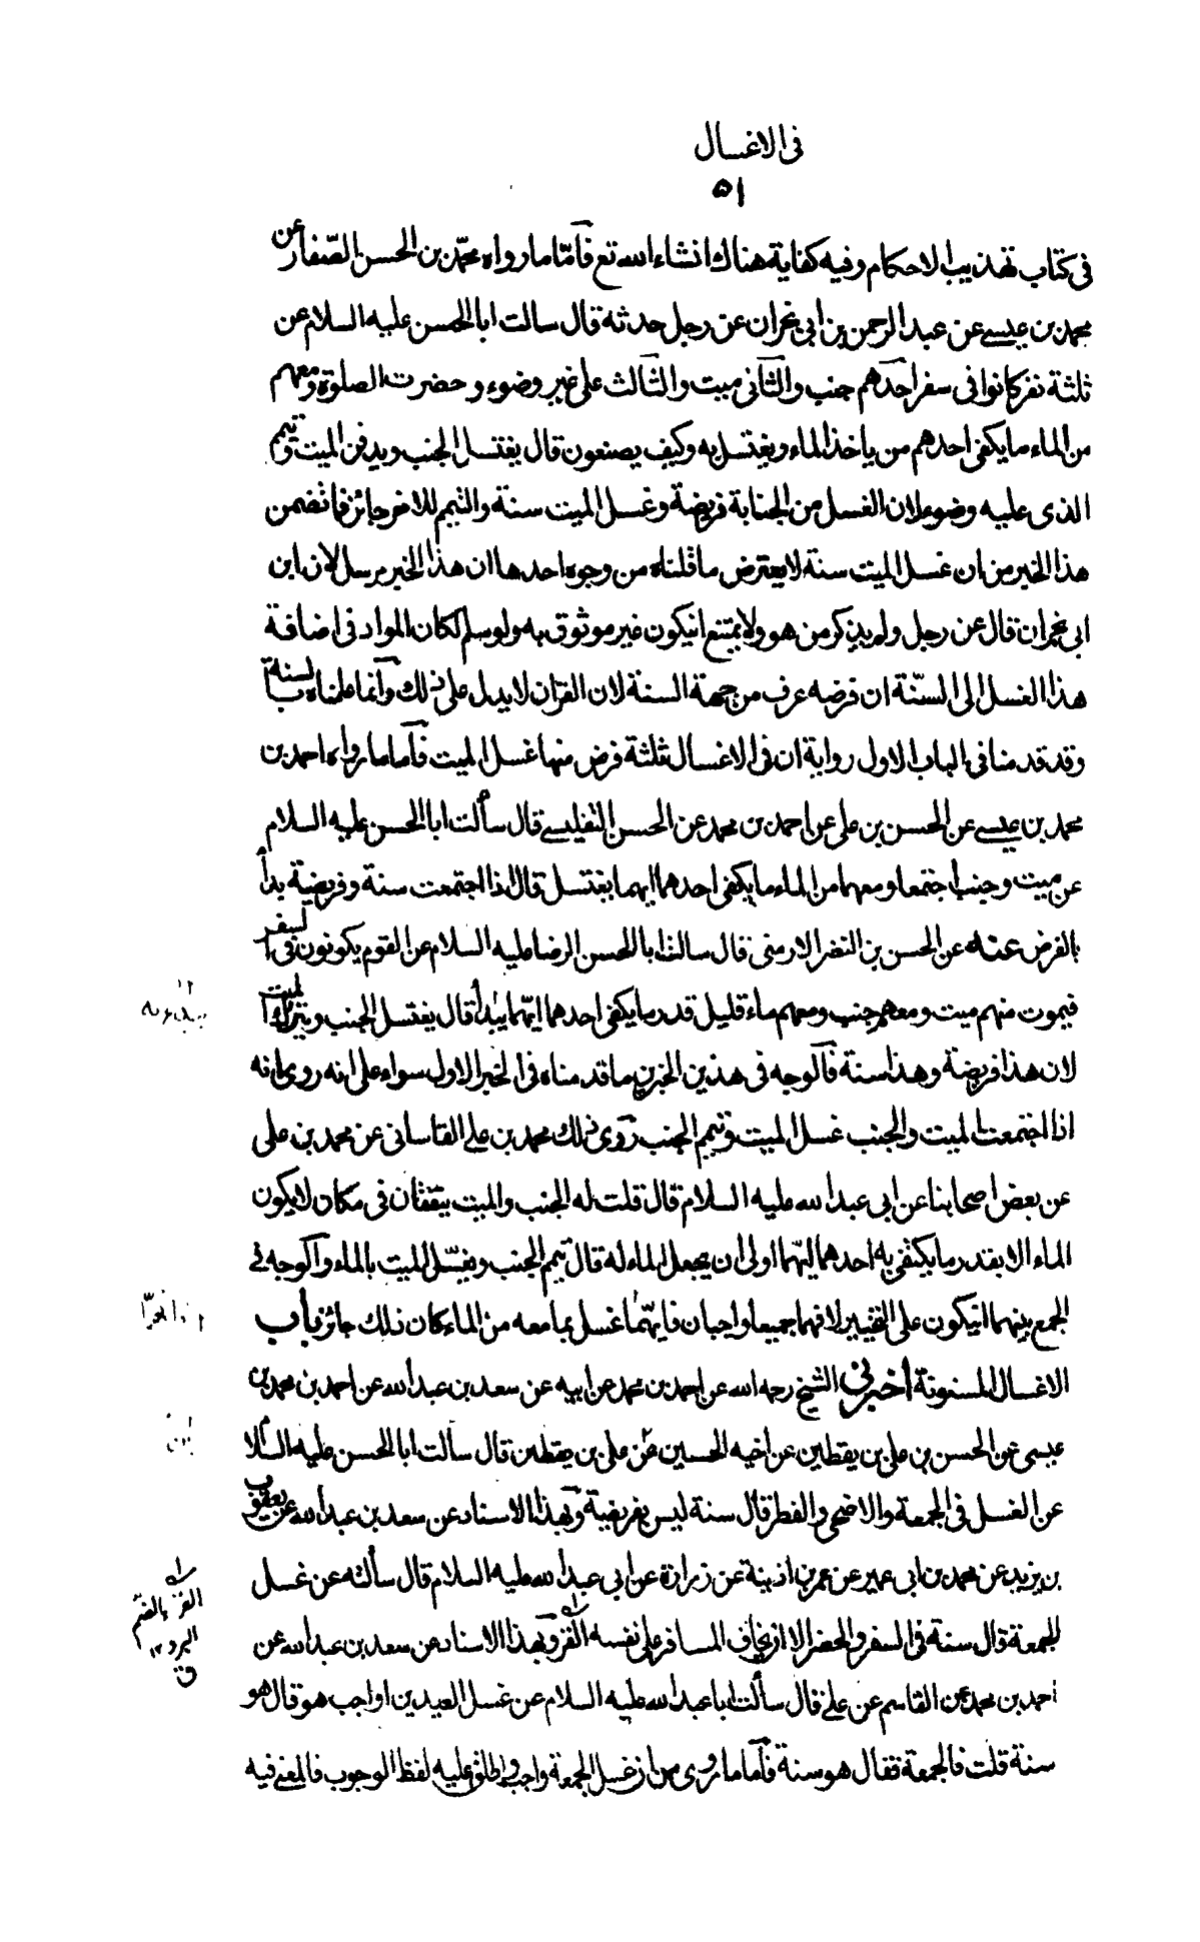 فى الاغسال
٥١
فى كتاب تهذيب الاحكام وفيه كفاية هناك انشاء الله تع فامّا ما رواه محمّد بن الحسن الصّفار عن
محمد بن عيسى عن عبد الرحمن بن ابى نجران عن رجل حدثه قال سالت ابا الحسن عليه السلام عن
ثلثة نفر كانوا فى سفر احدهم جنب والثانى ميت والثالث على غير وضوء وحضرت الصلوة ومعهم
من الماء ما يكفى احدهم من ياخذ الماء ويغتسل به وكيف يصنعون قال يغتسل الجنب ويدفن الميت وتيمم
الذى عليه وضوء لان الغسل من الجنابة فريضة وغسل الميت سنة والتيمم للاخر جائز فما تضمن
هذا الخبر من ان غسل الميت سنة لا يعترض ما قلناه من وجوه احدها ان هذا الخبر مرسل لان ابن
ابى نجران قال عن رجل ولم يذكر من هو ولا يمتنع ان يكون غير موثوق به ولو سلم لكان المراد فى اضافة
هذا الغسل الى السنّة ان فرضه عرف من جهة السنة لان القران لا يدل على ذلك وانما علمناه بالسنة
وقد قدمنا فى الباب الاول رواية ان فى الاغسال ثلثة فرض منها غسل الميت فاما ما رواه احمد بن
محمد بن عيسى عن الحسن بن على عن احمد بن محمد عن الحسن التفليسى قال سألت ابا الحسن عليه السلام
عن ميت وجنب اجتمعا ومعهما من الماء ما يكفى احدهما ايهما يغتسل قال اذا اجتمعت سنة وفريضة بدأ
بالفرض عنه عن الحسن بن النضر الارمنى قال سالت ابا الحسن الرضا عليه السلام عن القوم يكونون فى السفر
فيموت منهم ميت ومعهم جنب ومعهم ماء قليل قدر ما يكفى احدهما ايّهما يبدأ قال يغتسل الجنب ويترك الميت
لان هذا فريضة وهذا سنة فالوجه فى هذين الخبرين ما قدمناه فى الخبر الاول سواء على انه روى انه
اذا اجتمعت الميت والجنب غسل الميت وتيمم الجنب روى ذلك محمد بن على القاسانى عن محمد بن على
عن بعض اصحابنا عن ابى عبد الله عليه السلام قال قلت له الجنب والميت يتفقان فى مكان لا يكون
الماء الا بقدر ما يكتفى به احدهما ايّهما اولى ان يجعل الماء له قال تيمم الجنب ويغسّل الميت بالماء والوجه فى
الجمع بينهما ان يكون على التخيير لانهما جميعا واجبان فايّهما غسل بما معه من الماء كان ذلك جائز باب
الاغسال المسنونة اخبرنى الشيخ رحمه الله عن احمد بن محمد عن ابيه عن سعد بن عبد الله عن احمد بن محمد بن
عيسى عن الحسن بن على بن يقطين عن اخيه الحسين عن على بن يقطين قال سألت ابا الحسن عليه السلام
عن الغسل فى الجمعة والاضحى والفطر قال سنة ليس بفريضة وبهذا الاسناد عن سعد بن عبد الله عن يعقوب
بن يزيد عن محمد بن ابى عمير عن عمر بن اذينة عن زرارة عن ابى عبد الله عليه السلام قال سألته عن غسل
الجمعة قال سنة فى السفر والحضر الا ان يخاف المسافر على نفسه القر وبهذا الاسناد عن سعد بن عبد الله عن
القر بالضم
البرد ١٢
ق
احمد بن محمد عن القاسم عن على قال سألت ابا عبد الله عليه السلام عن غسل العيدين اواجب هو قال هو
سنة قلت فالجمعة فقال هو سنة فاما ما روى من ان غسل الجمعة واجب واطلق عليه لفظ الوجوب فالمعنى فيه